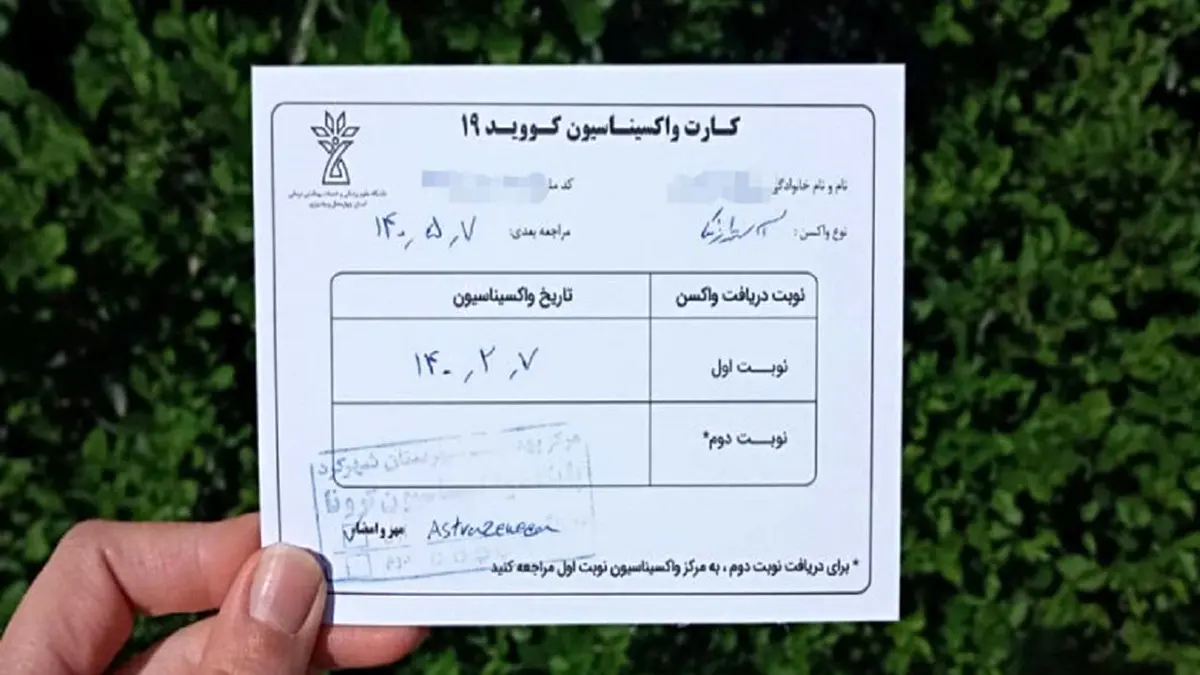 کارت واکسیناسیون کووید ۱۹
دانشگاه علوم پزشکی و خدمات بهداشتی درمانی
استان چهارمحال و بختیاری
نام و نام خانوادگی کد مل
نوع واکسن: آسترازنکا مراجعه بعدی: ۱۴۰۰٫۵٫۷
نوبت دریافت واکسن تاریخ واکسیناسیون
نوبت اول ۱۴۰۰٫۲٫۷
نوبت دوم*
شهرستان شهرکرد
کرونا
مهر و امضاء Astrazeneca
دوم
* برای دریافت نوبت دوم ، به مرکز واکسیناسیون نوبت اول مراجعه کنید